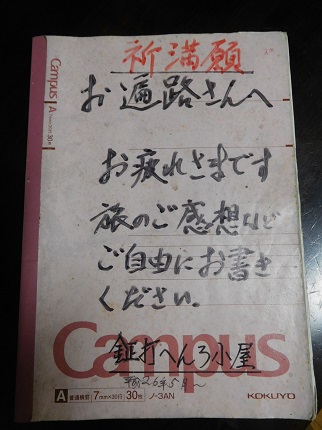 Campus
A 7mm×30行 30枚
祈満願
お遍路さんへ
お疲れさまです
旅のご感想など
ご自由にお書き
ください。
Campus
鉦打へんろ小屋
平成26年5月〜
A 普通横罫 7mm×30行 30枚 ノ-3AN
KOKUYO